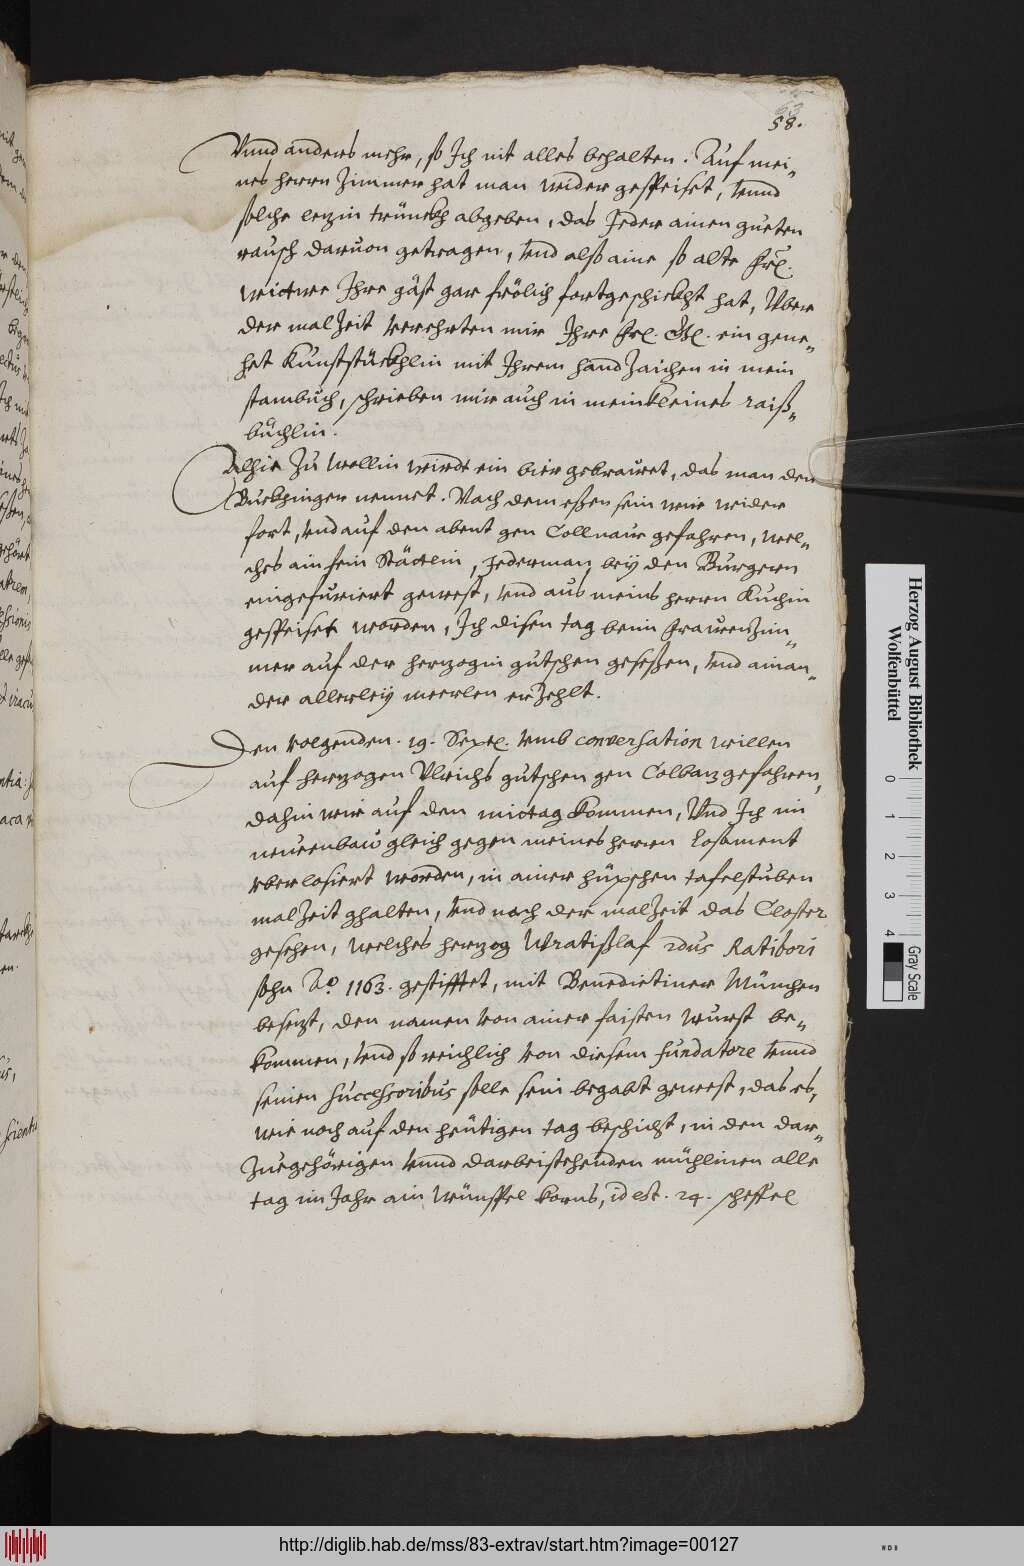 63
58.
Vnnd anders mehr, so Ich nit alles behalten. Auf mei„
nes herrn Zimmer hat man wider gespeiset, vnnd
solche lezin trünckh abgeben, das Jeder ainen gueten
rausch daruon getragen, vnd alß aine so alte frl.
wittwe Ihre gäst gar frölich fortgeschickht hat, Vber
der malzeit verehrten mir Ihre frl. Gl. ein gene„
het Kunststückhlin mit Ihrem handzaichen in mein
stambuch, schrieben mir auch in mein kleines raiß„
büchlin.
Alhie zu Wollin wirdt ein bier gebrauwet, das man den
Buckhinger nennet. Nach dem eßen sein wir wider
fort, vnd auf den abent gen Collnaw gefahren, wel„
ches ain fein Stättlin, Jederman bey den Burgern
eingefuriert gewest, vnd aus meins herrn Kuchin
gespeiset worden, Ich disen tag beim frawenzim„
mer auf der herzogin gutschen geseßen, vnd ainan„
der allerleÿ meerlen erzehlt.
Den volgenden. 19. Septl. vmb conversation willen
auf herzogen Vlrichs gutschen gen Colbaz gefahren,
dahin wir auf den mittag kommen, Vnd Ich im
neuenbaw gleich gegen meines herrn Losament
vber losiert worden, in ainer hüpschen tafelstuben
malzeit ghalten, vnd nach der malzeit das Closter
gesehen, welches herzog Wratißlaf 2dus Ratibori
sohn Ao. 1163. gestifftet, mit Benedictiner München
besezt, den namen von ainer faisten wurst be„
kommen, vnd so reichlich von diesem fundatore vnnd
seinen successoribus solle sein begabt gewest, das es,
wie noch auf den heütigen tag beschicht, in den dar„
zuegehörigen vnnd darbeistehenden mühlinen alle
tag im Jahr ain Wünspel korns, id est. 24. scheffel
Herzog August Bibliothek
Wolfenbüttel
0
1
2
3
4
Gray Scale
http://diglib.hab.de/mss/83-extrav/start.htm?image=00127